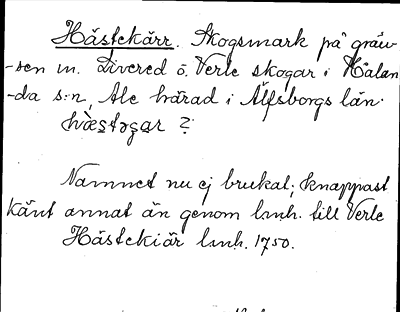 Hästekärr. Skogsmark på gräw-
-sen m. Livered o. Verle skogar i Hålan-
-da s:n, Ale härad i Älfsborgs län.
hæstəçar ?
Namnet nu ej brukat; knappast
känt annat än genom lmh. till Verle
Hästekiär lmh. 1750.